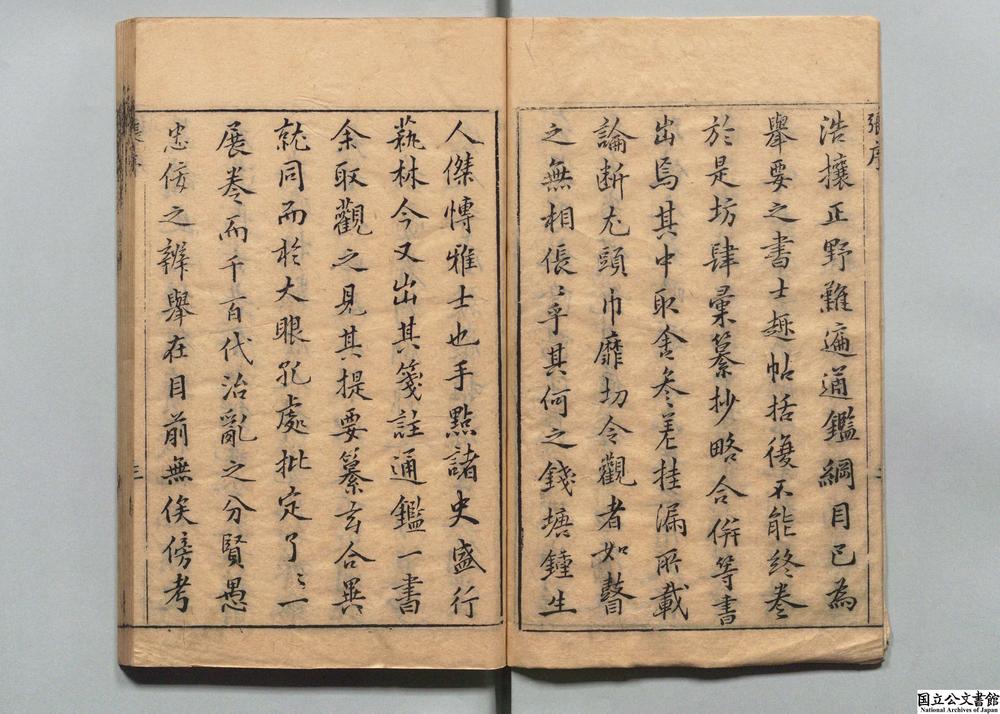 張序
浩攘正野難遍通鑑綱目已為
舉要之書士趣帖括復不能終卷
於是坊肆彙纂抄略合併等書
出焉其中取舍參差挂漏所載
論斷尤頭巾靡切令觀者如瞽
之無相倀〻乎其何之錢塘鍾生
人傑博雅士也手點諸史盛行
蓺林今又出其箋註通鑑一書
余取觀之見其提要纂玄合異
就同而於大眼孔處批定了〻一
展卷而千百代治亂之分賢愚
忠佞之辨舉在目前無俟傍考
三
国立公文書館
National Archives of Japan